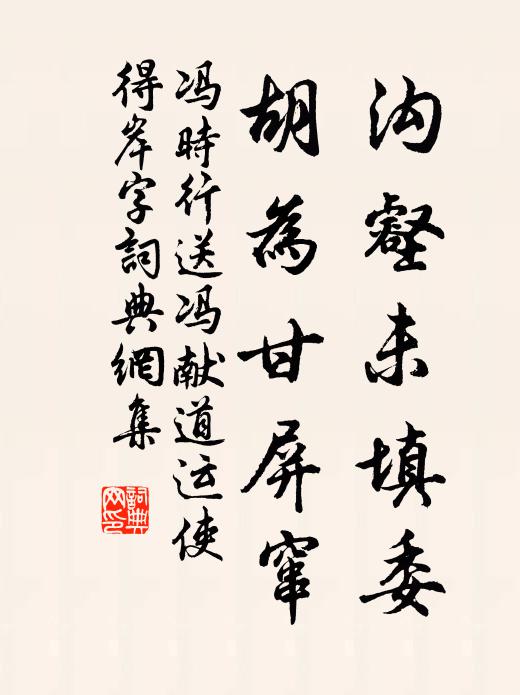 沟壑未填委
胡為甘屏窜
冯時行送冯献道运使
得岸字詞典網集
詞典网印